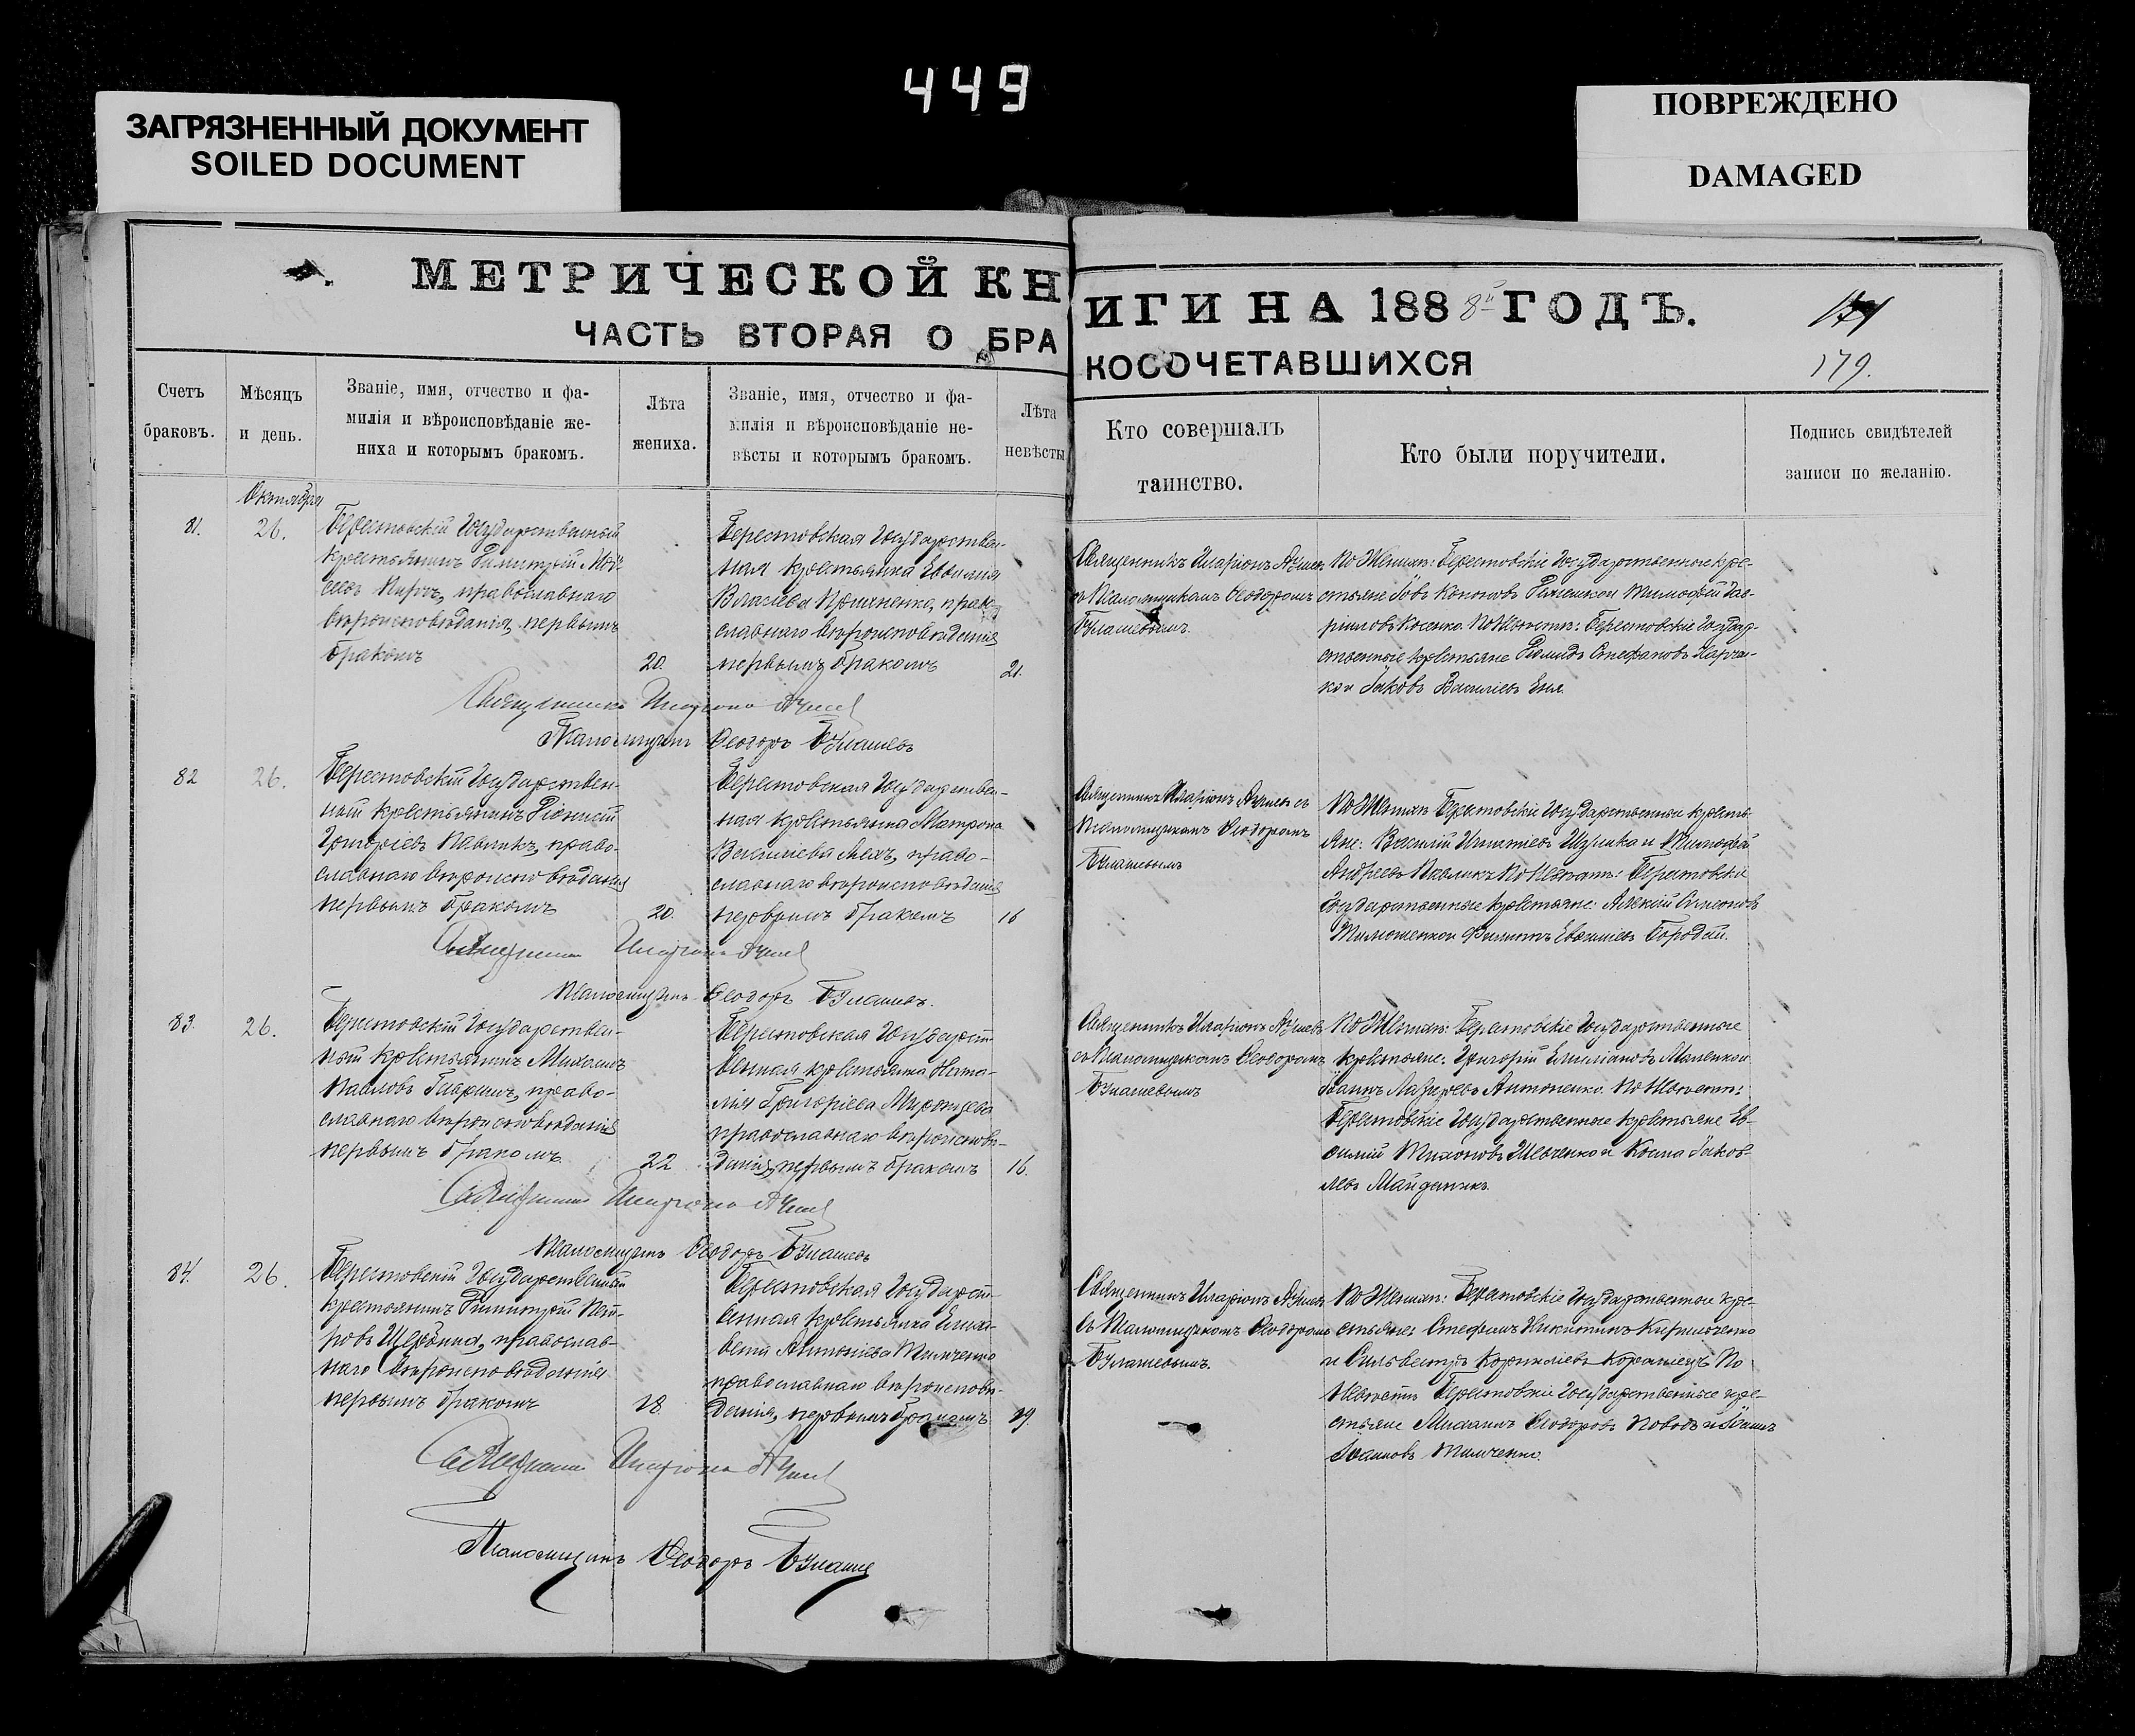 449
ЗАГРЯЗНЕННЫЙ ДОКУМЕНТ
SOILED DOCUMENT
ПОВРЕЖДЕНО
DAMAGED
МЕТРИЧЕСКОЙ КНИГИ НА 1888й ГОДЪ.
ЧАСТЬ ВТОРАЯ О БРАКОСОЧЕТАВШИХСЯ
179.
Счетъ
браковъ.
Мѣсяцъ
и день.
Званіе, имя, отчество и фа-
милія и вѣроисповѣданіе же-
ниха и которымъ бракомъ.
Лѣта
жениха.
Званіе, имя, отчество и фа-
милія и вѣроисповѣданіе не-
вѣсты и которымъ бракомъ.
Лѣта
невѣсты
Кто совершалъ
таинство.
Кто были поручители.
Подпись свидѣтелей
записи по желанію.
Октября
81.
26.
Берестовскій Государственный
крестьянинъ Димитрій Мои-
сеевъ православнаго
вѣроисповѣданія, первымъ
бракомъ
20.
Берестовская Государствен-
ная крестьянка Евфимія
Власіева право-
славнаго вѣроисповѣданія
первымъ бракомъ
21.
Священникъ Иларіонъ
съ Псаломщикомъ Ѳеодоромъ
По Женихѣ: Берестовскіе Государственные кре-
стьяне Іовъ Кононовъ и Тимофей Гав-
риловъ Косенко. По Невѣстѣ: Берестовскіе Государ-
ственные крестьяне Стефановъ
и Іаковъ Василіевъ
Священникъ Иларіонъ
Псаломщикъ Ѳеодоръ
82
26.
Берестовскій Государствен-
ный крестьянинъ Діонисій
Григоріевъ Павликъ, право-
славнаго вѣроисповѣданія
первымъ бракомъ
20.
Берестовская Государствен-
ная крестьянка Матрона
Василіева право-
славнаго вѣроисповѣданія
первымъ бракомъ
16
Священникъ Иларіонъ съ
Псаломщикомъ Ѳеодоромъ
По Женихѣ Берестовскіе Государственные кресть-
яне: Василій Игнатіевъ и Тимофей
Андреевъ Павликъ. По Невѣстѣ: Берестовскіе
Государственные крестьяне: Алексій Симеоновъ
Тимошенко и Филиппъ Евфиміевъ Бородай.
Священникъ Иларіонъ
Псаломщикъ Ѳеодоръ
83.
26.
Берестовскій Государствен-
ный крестьянинъ Михаилъ
Павловъ право-
славнаго вѣроисповѣданія
первымъ бракомъ
22
Берестовская Государст-
венная крестьянка Ната-
лія Григоріева
православнаго вѣроисповѣ-
данія, первымъ бракомъ
16.
Священникъ Иларіонъ
съ Псаломщикомъ Ѳеодоромъ
По Женихѣ: Берестовскіе Государственные
крестьяне: Григорій Емиліановъ
Іоаннъ Лазаревъ Антоненко. По Невѣстѣ:
Берестовскіе Государственные крестьяне Ев-
фимій Тихоновъ Шевченко и Косма Іаков-
левъ Майданикъ.
Священникъ Иларіонъ
Псаломщикъ Ѳеодоръ
84.
26.
Берестовскій Государственный
крестьянинъ Димитрій Пет-
ровъ Щербина, православ-
наго вѣроисповѣданія
первымъ бракомъ
18.
Берестовская Государст-
венная крестьянка Елиса-
вета Антоніева Тимченко
православнаго вѣроисповѣ-
данія, первымъ бракомъ
19.
Священникъ Иларіонъ
съ Псаломщикомъ Ѳеодоромъ
По Женихѣ: Берестовскіе Государственные кре-
стьяне: Стефанъ Никитинъ Кириченко
и Сильвестръ Корниліевъ По
Невѣстѣ Берестовскіе Государственные кре-
стьяне Михаилъ Ѳеодоровъ и Іоаннъ
Іоанновъ Тимченко.
Священникъ Иларіонъ
Псаломщикъ Ѳеодоръ